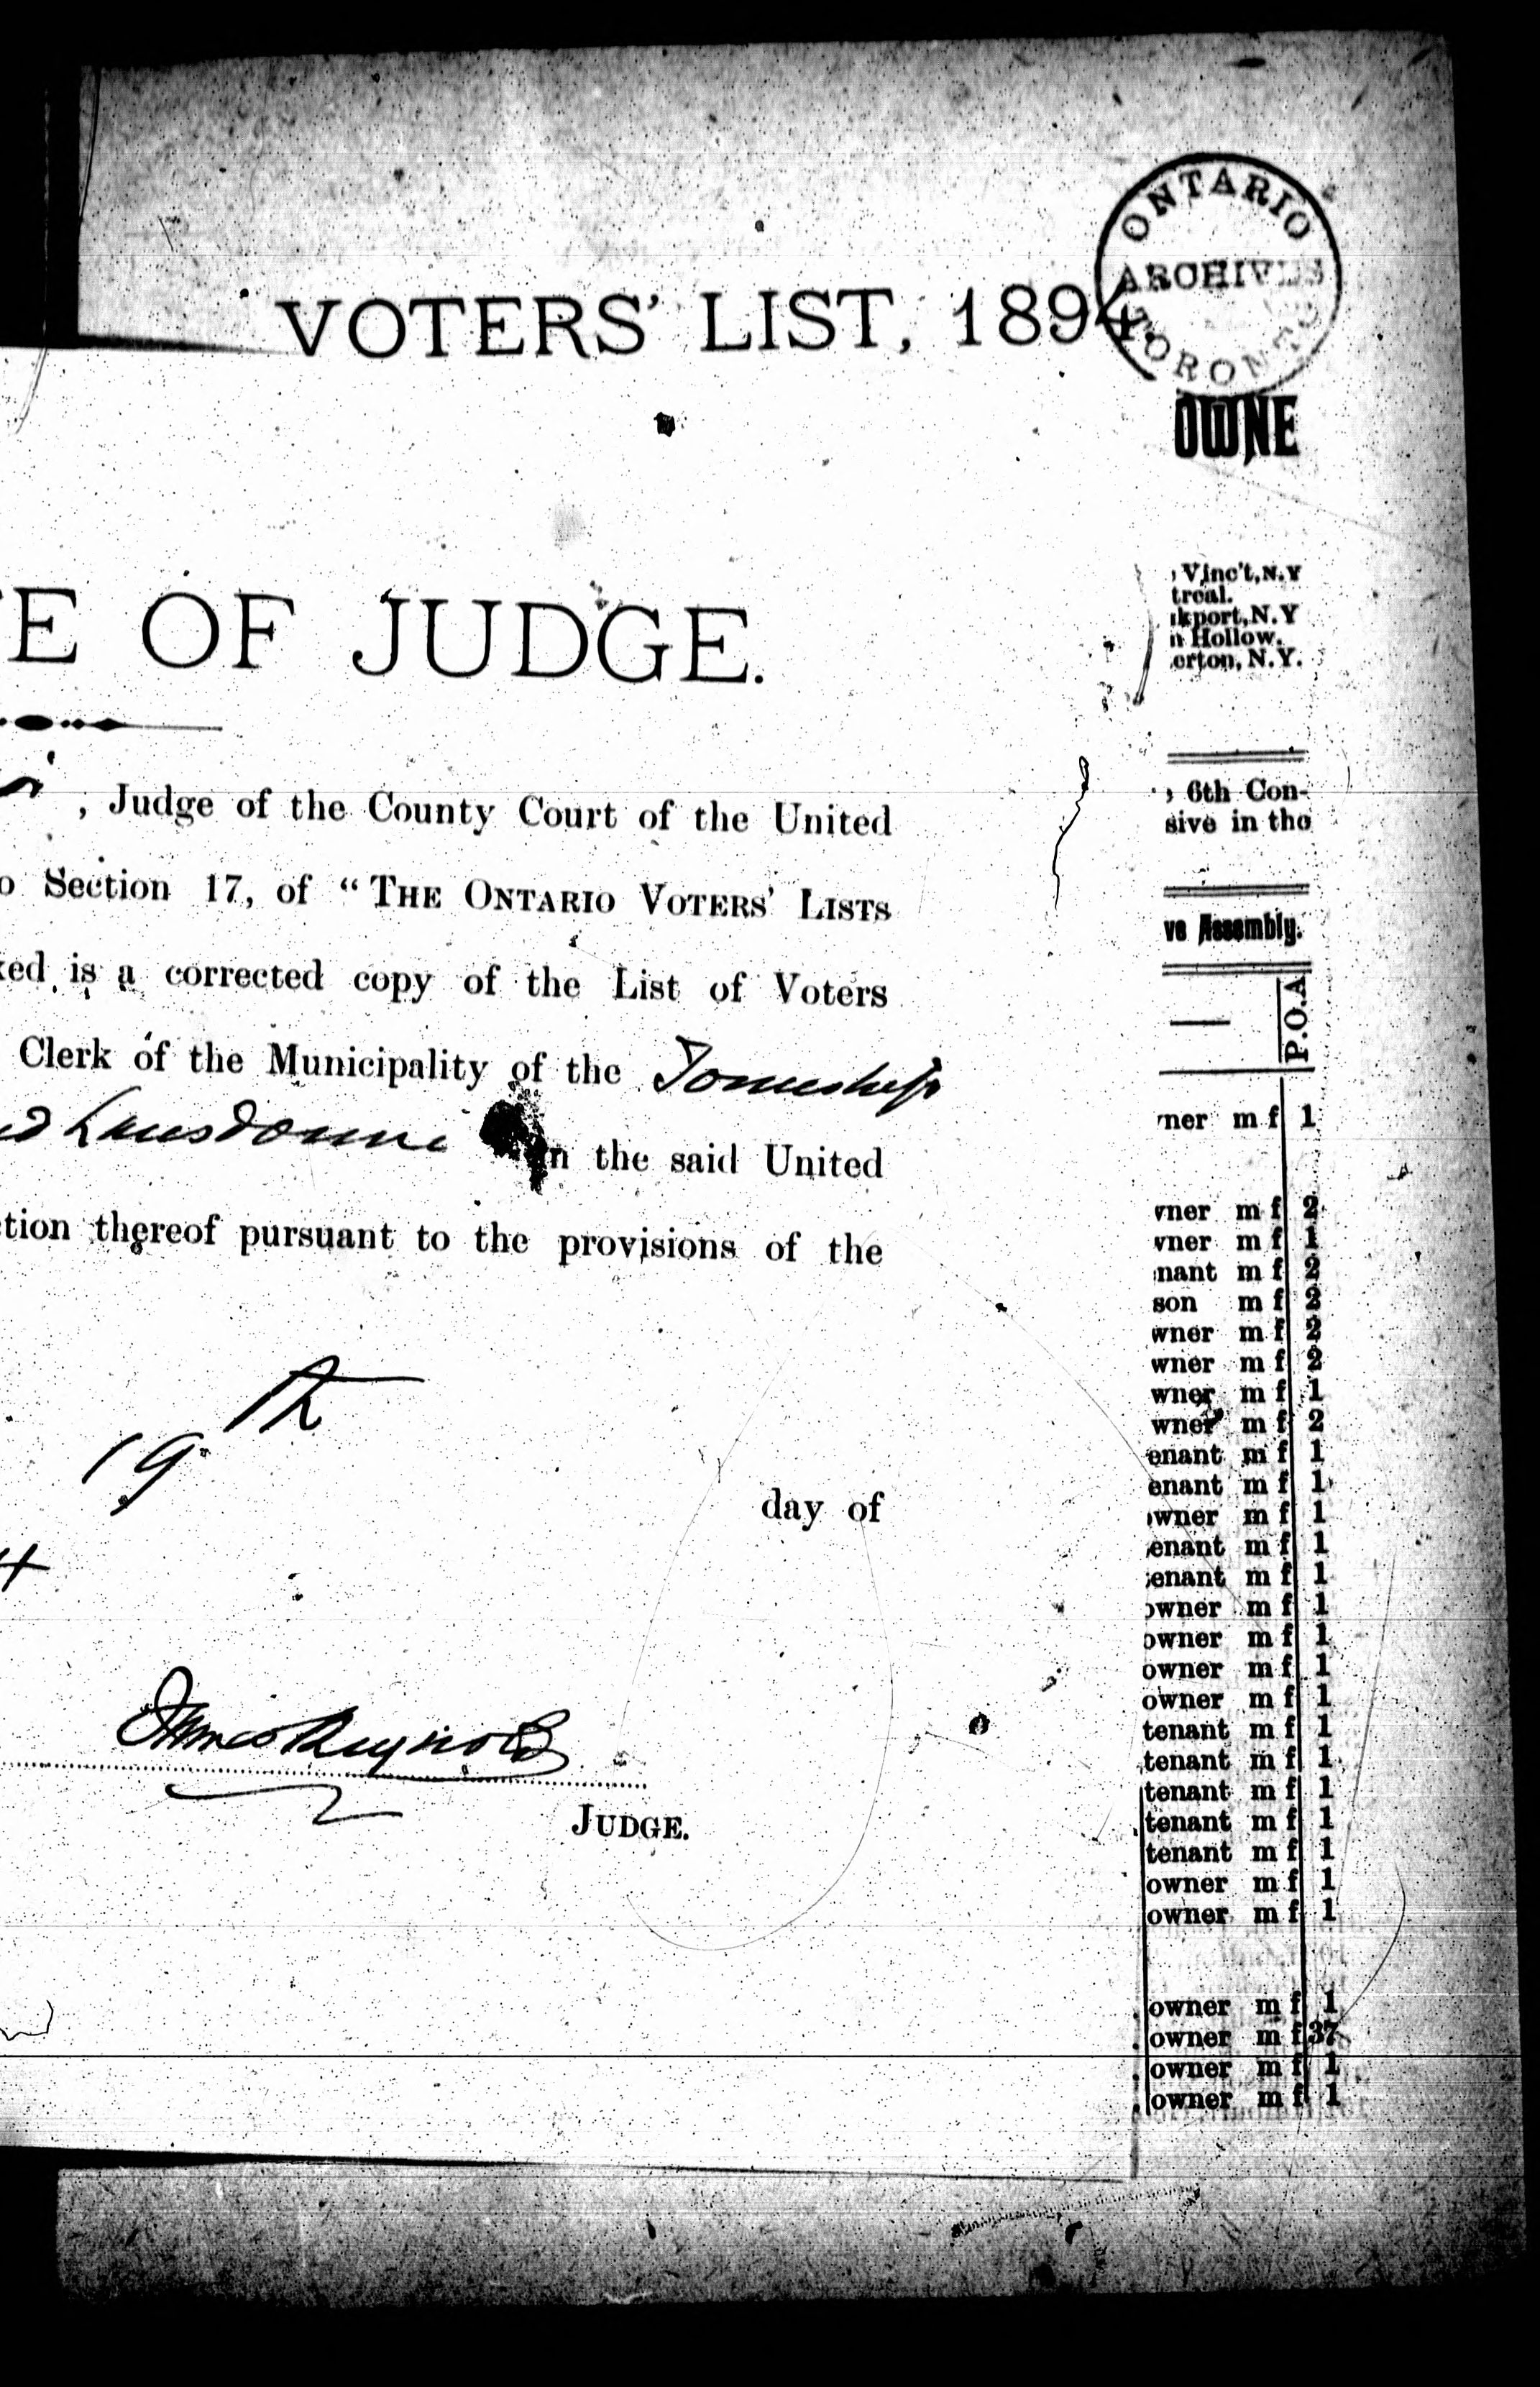 ONTARIO
ARCHIVES
TORONTO
VOTERS' LIST, 1894.
E OF JUDGE.
, Judge of the County Court of the United
o Section 17, of "THE ONTARIO VOTERS' LISTS
ked is a corrected copy of the List of Voters
Clerk of the Municipality of the Township
Lansdowne in the said United
tion thereof pursuant to the provisions of the
19th
day of
4
James Reynolds
JUDGE.
OWNE
Vinc't, N.Y
treal.
kport, N.Y
n Hollow.
erton, N.Y.
, 6th Con-
sive in the
ve Assembly.
P.O.A
ner m f 1
wner m f 2
wner m f 1
nant m f 2
son m f 2
wner m f 2
wner m f 2
wner m f 1
wner m f 2
enant m f 1
enant m f 1
owner m f 1
enant m f 1
enant m f 1
owner m f 1
owner m f 1
owner m f 1
owner m f 1
tenant m f 1
tenant m f 1
tenant m f 1
tenant m f 1
tenant m f 1
owner m f 1
owner m f 1
owner m f 1
owner m f 37
owner m f 1
owner m f 1